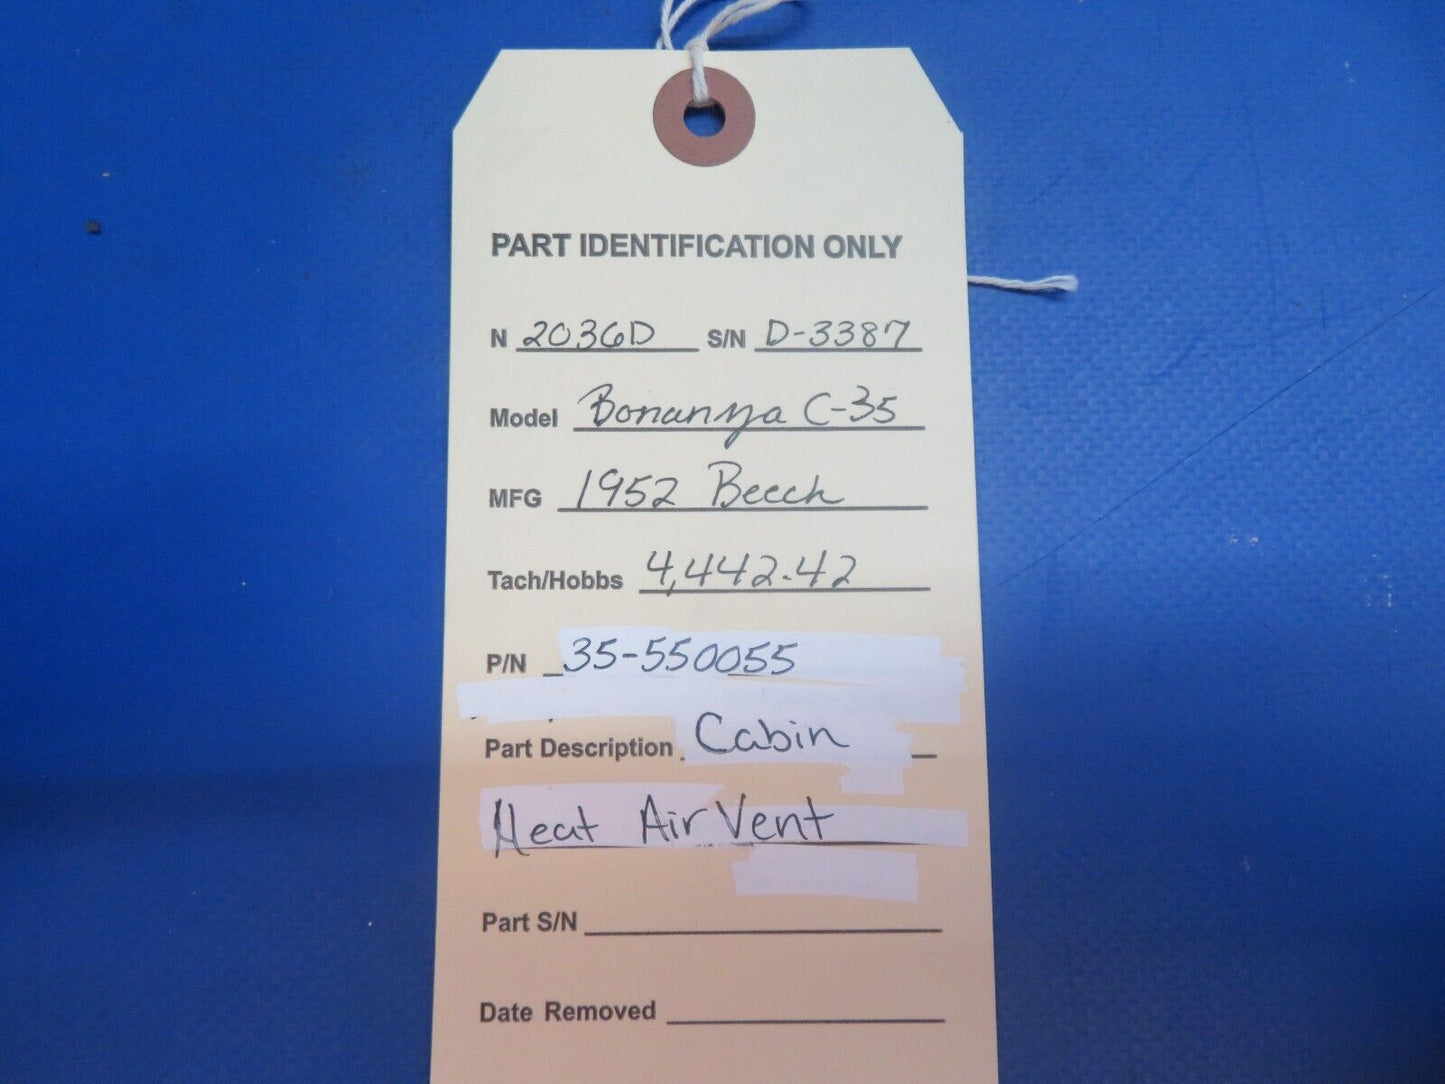 PART IDENTIFICATION ONLY
N 2036D S/N D-3387
Model Bonanza C-35
MFG 1952 Beech
Tach/Hobbs 4,442.42
P/N 35-550055
Part Description Cabin
Heat Air Vent
Part S/N
Date Removed